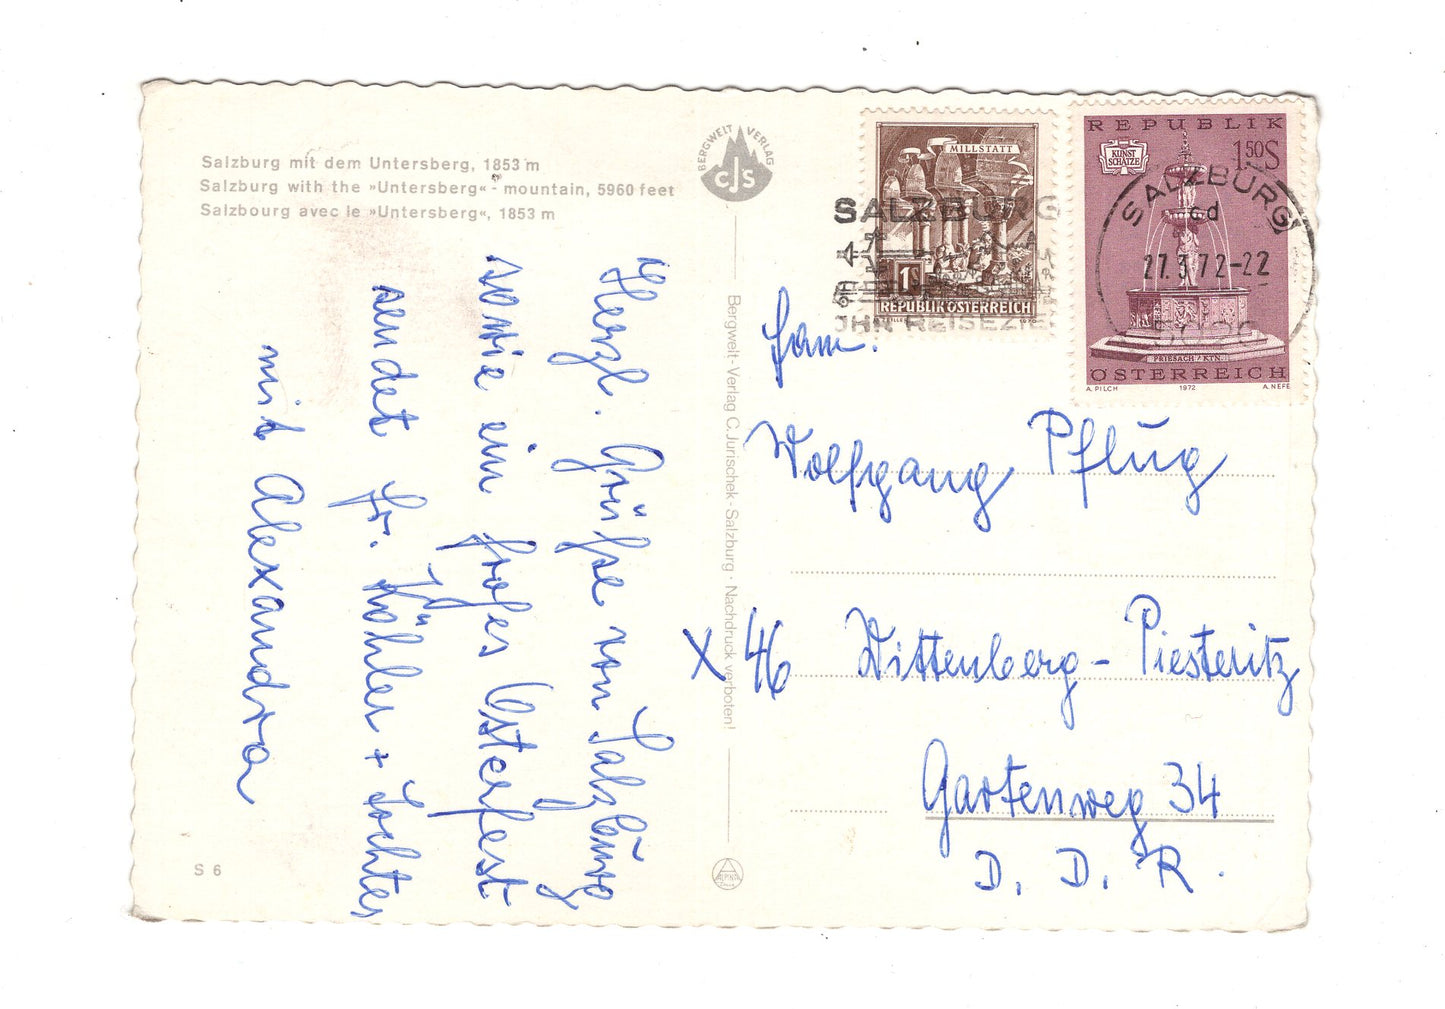 Salzburg mit dem Untersberg, 1853 m
Salzburg with the »Untersberg« - mountain, 5960 feet
Salzbourg avec le »Untersberg«, 1853 m
Herzl. Grüße von Salzburg
sowie ein frohes Osterfest
sendet Fr. Köhler + Tochter
mit Alexandra
S 6
BERGWELT VERLAG
CJS
Bergwelt-Verlag C. Jurischek - Salzburg · Nachdruck verboten!
ALPINA
MILLSTATT
1S
REPUBLIK ÖSTERREICH
SALZBURG
REISEZIEL
REPUBLIK
KUNST
SCHÄTZE
1.50 S
FRIESACH / KTN.
ÖSTERREICH
A. PILCH 1972 A. NEFE
SALZBURG
cd
27.3.72-22
5020
Fam.
Wolfgang Pflug
X 46 Wittenberg - Piesteritz
Gartenweg 34
D. D. R.